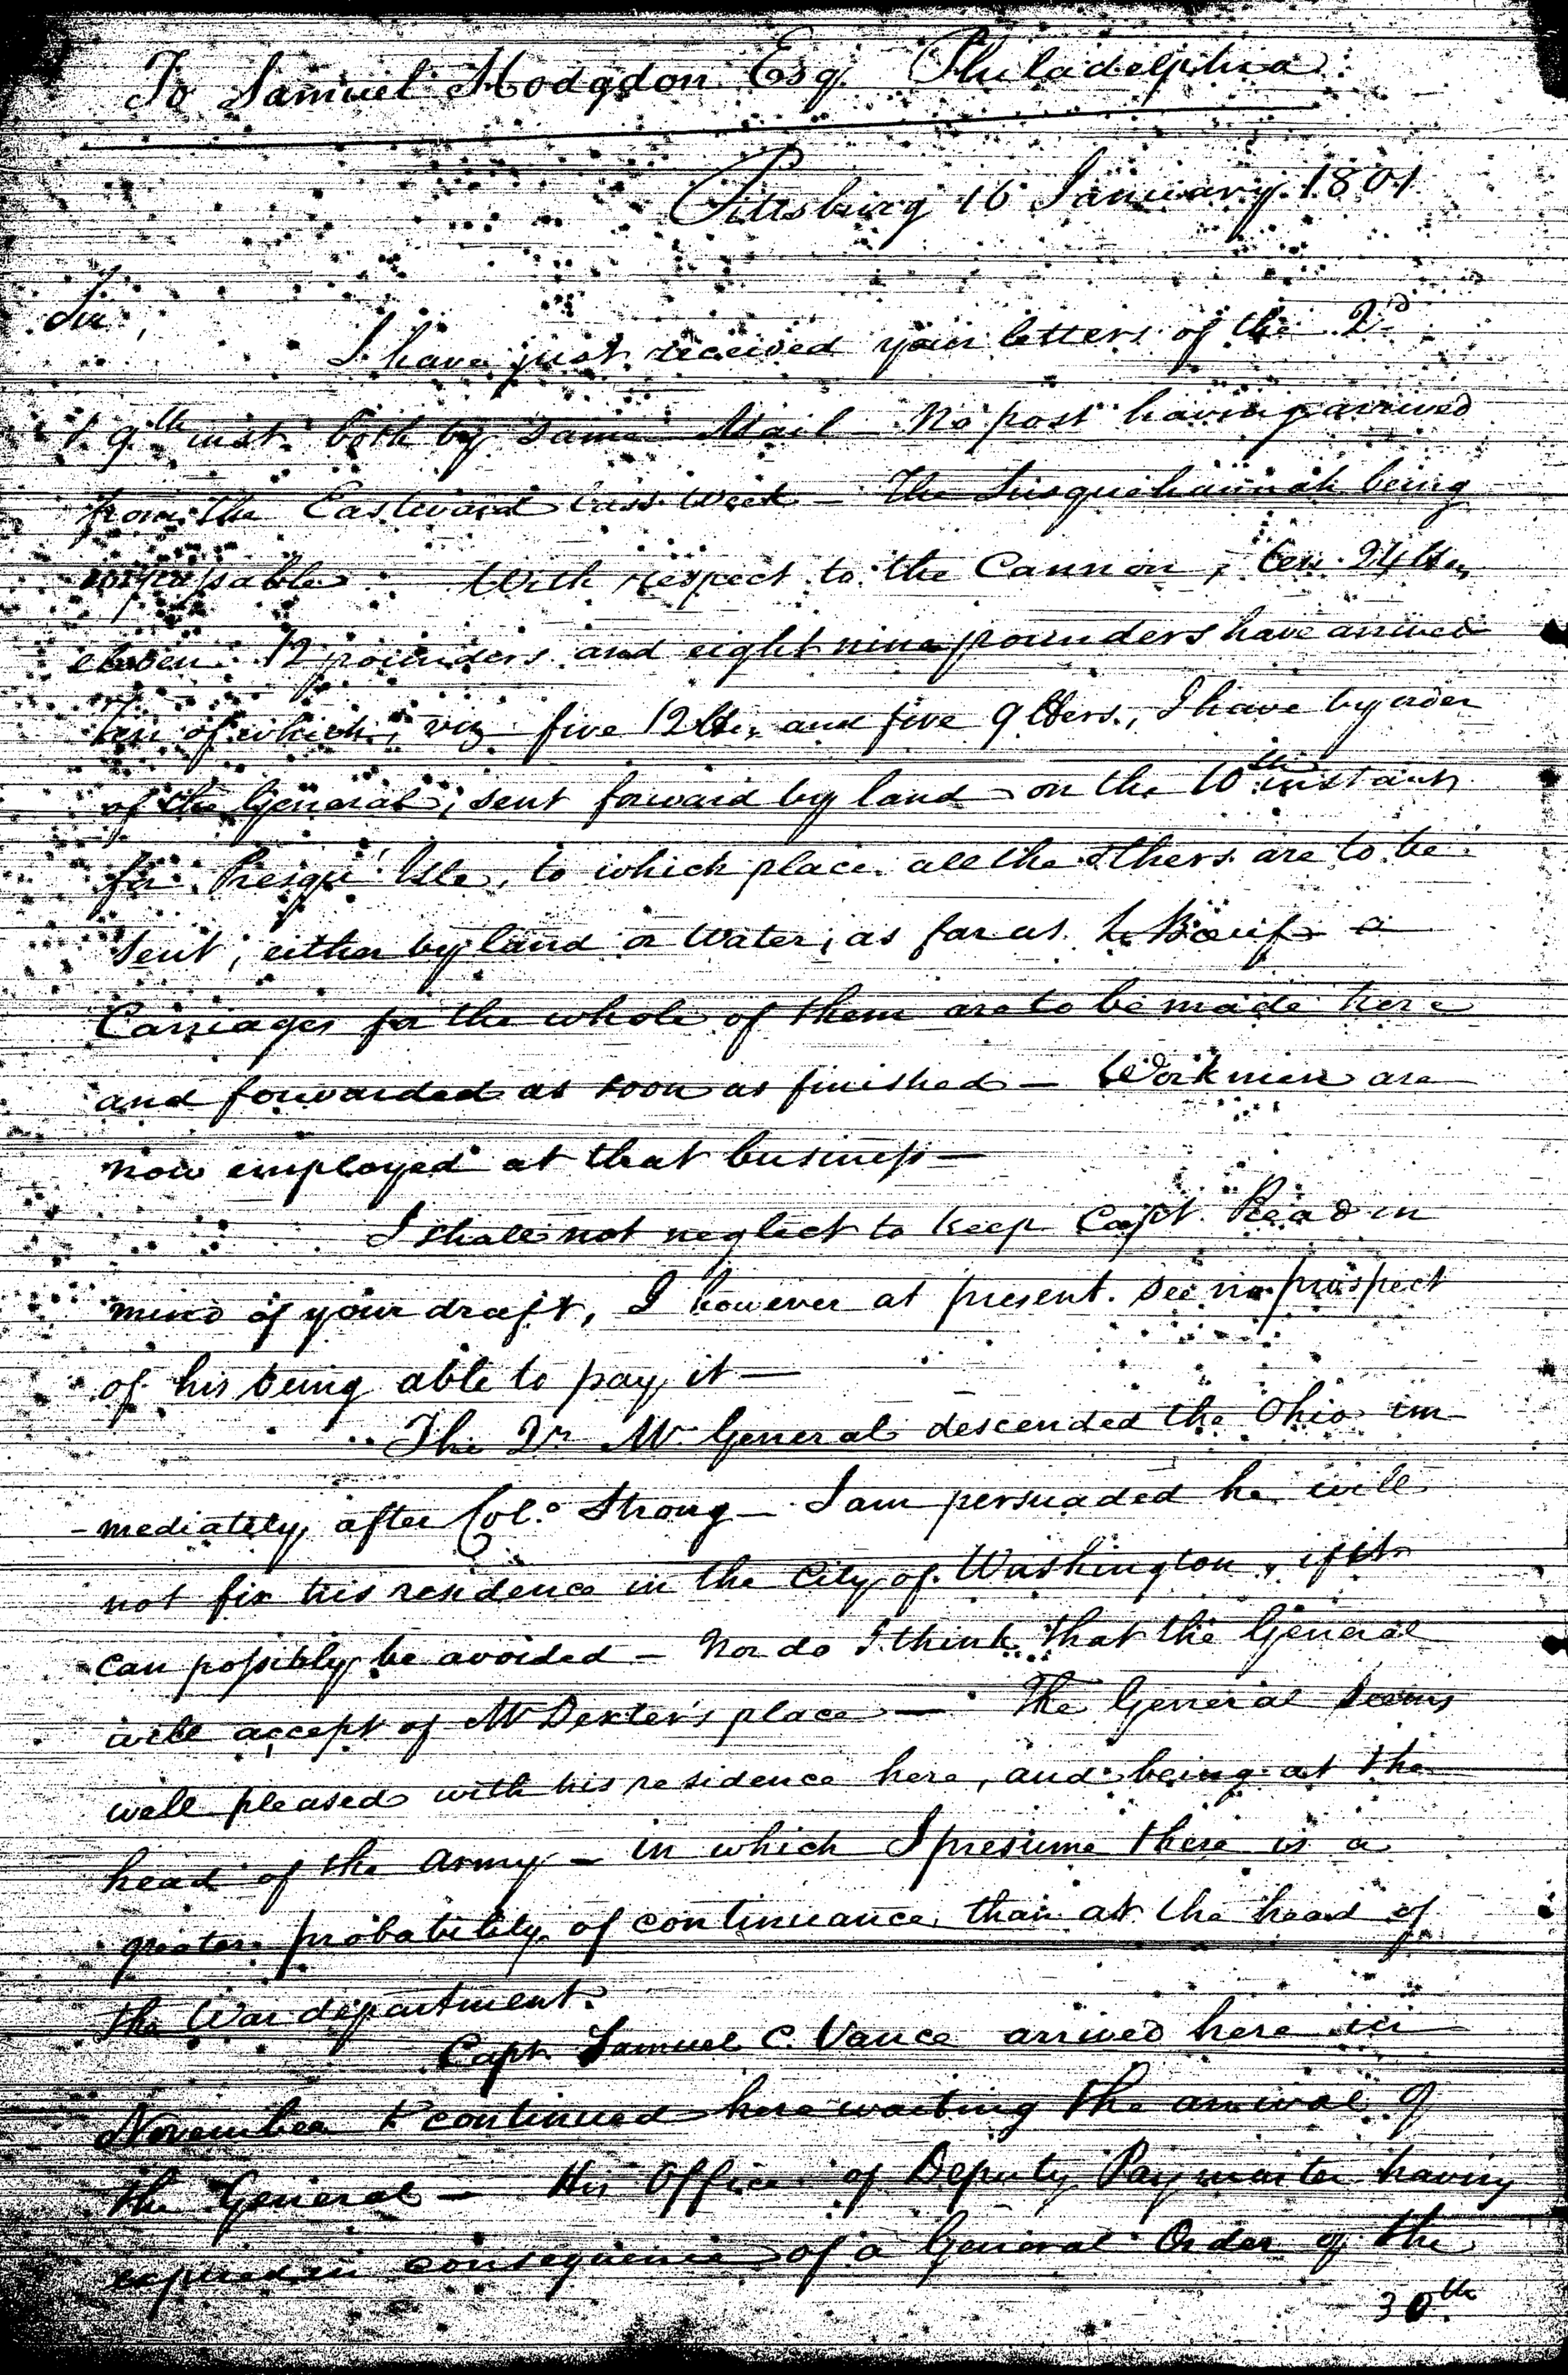 To Samuel Hodgdon Esqr. Philadelphia
Pittsburg 16 January 1801
Sir,
I have just received your letters of the 2d
& 9th inst. both by same Mail – No post having arrived
from the Eastward last week – The Susquehannah being
impassable – With respect to the Cannon, ten 24 lbrs,
eleven 12 pounders and eight nine pounders have arrived
ten of which, viz five 12 lbrs, and five 9 lbers, I have by order
of the General, sent forward by land on the 10th instant
for Presqu' Isle, to which place all the others are to be
sent, either by land or Water, as far as Le Boeuf –
Carriages for the whole of them are to be made here
and forwarded as soon as finished – Workmen are
now employed at that business –
I shall not neglect to keep Capt. Read in
mind of your draft, I however at present see no prospect
of his being able to pay it –
The Qr. Mr. General descended the Ohio im-
-mediately after Colo. Strong – I am persuaded he will
not fix his residence in the City of Washington, if it
can possibly be avoided – Nor do I think that the General
will accept of Mr Dexter's place – The General seems
well pleased with his residence here, and being at the
head of the Army – in which I presume there is a
greater probability of continuance, than at the head of
the War department.
Capt Samuel C. Vance arrived here in
November & continued here waiting the arrival of
the General – His Office of Deputy Paymaster having
expired in consequence of a General Order of the
30th